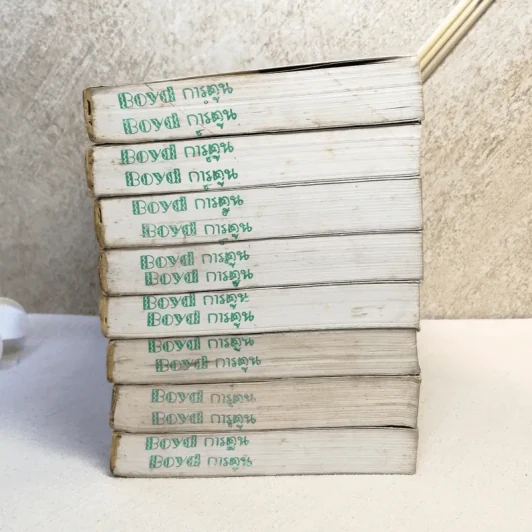 Boyd การ์ตูน
Boyd การ์ตูน
Boyd การ์ตูน
Boyd การ์ตูน
Boyd การ์ตูน
Boyd การ์ตูน
Boyd การ์ตูน
Boyd การ์ตูน
Boyd การ์ตูน
Boyd การ์ตูน
Boyd การ์ตูน
Boyd การ์ตูน
Boyd การ์ตูน
Boyd การ์ตูน
Boyd การ์ตูน
Boyd การ์ตูน